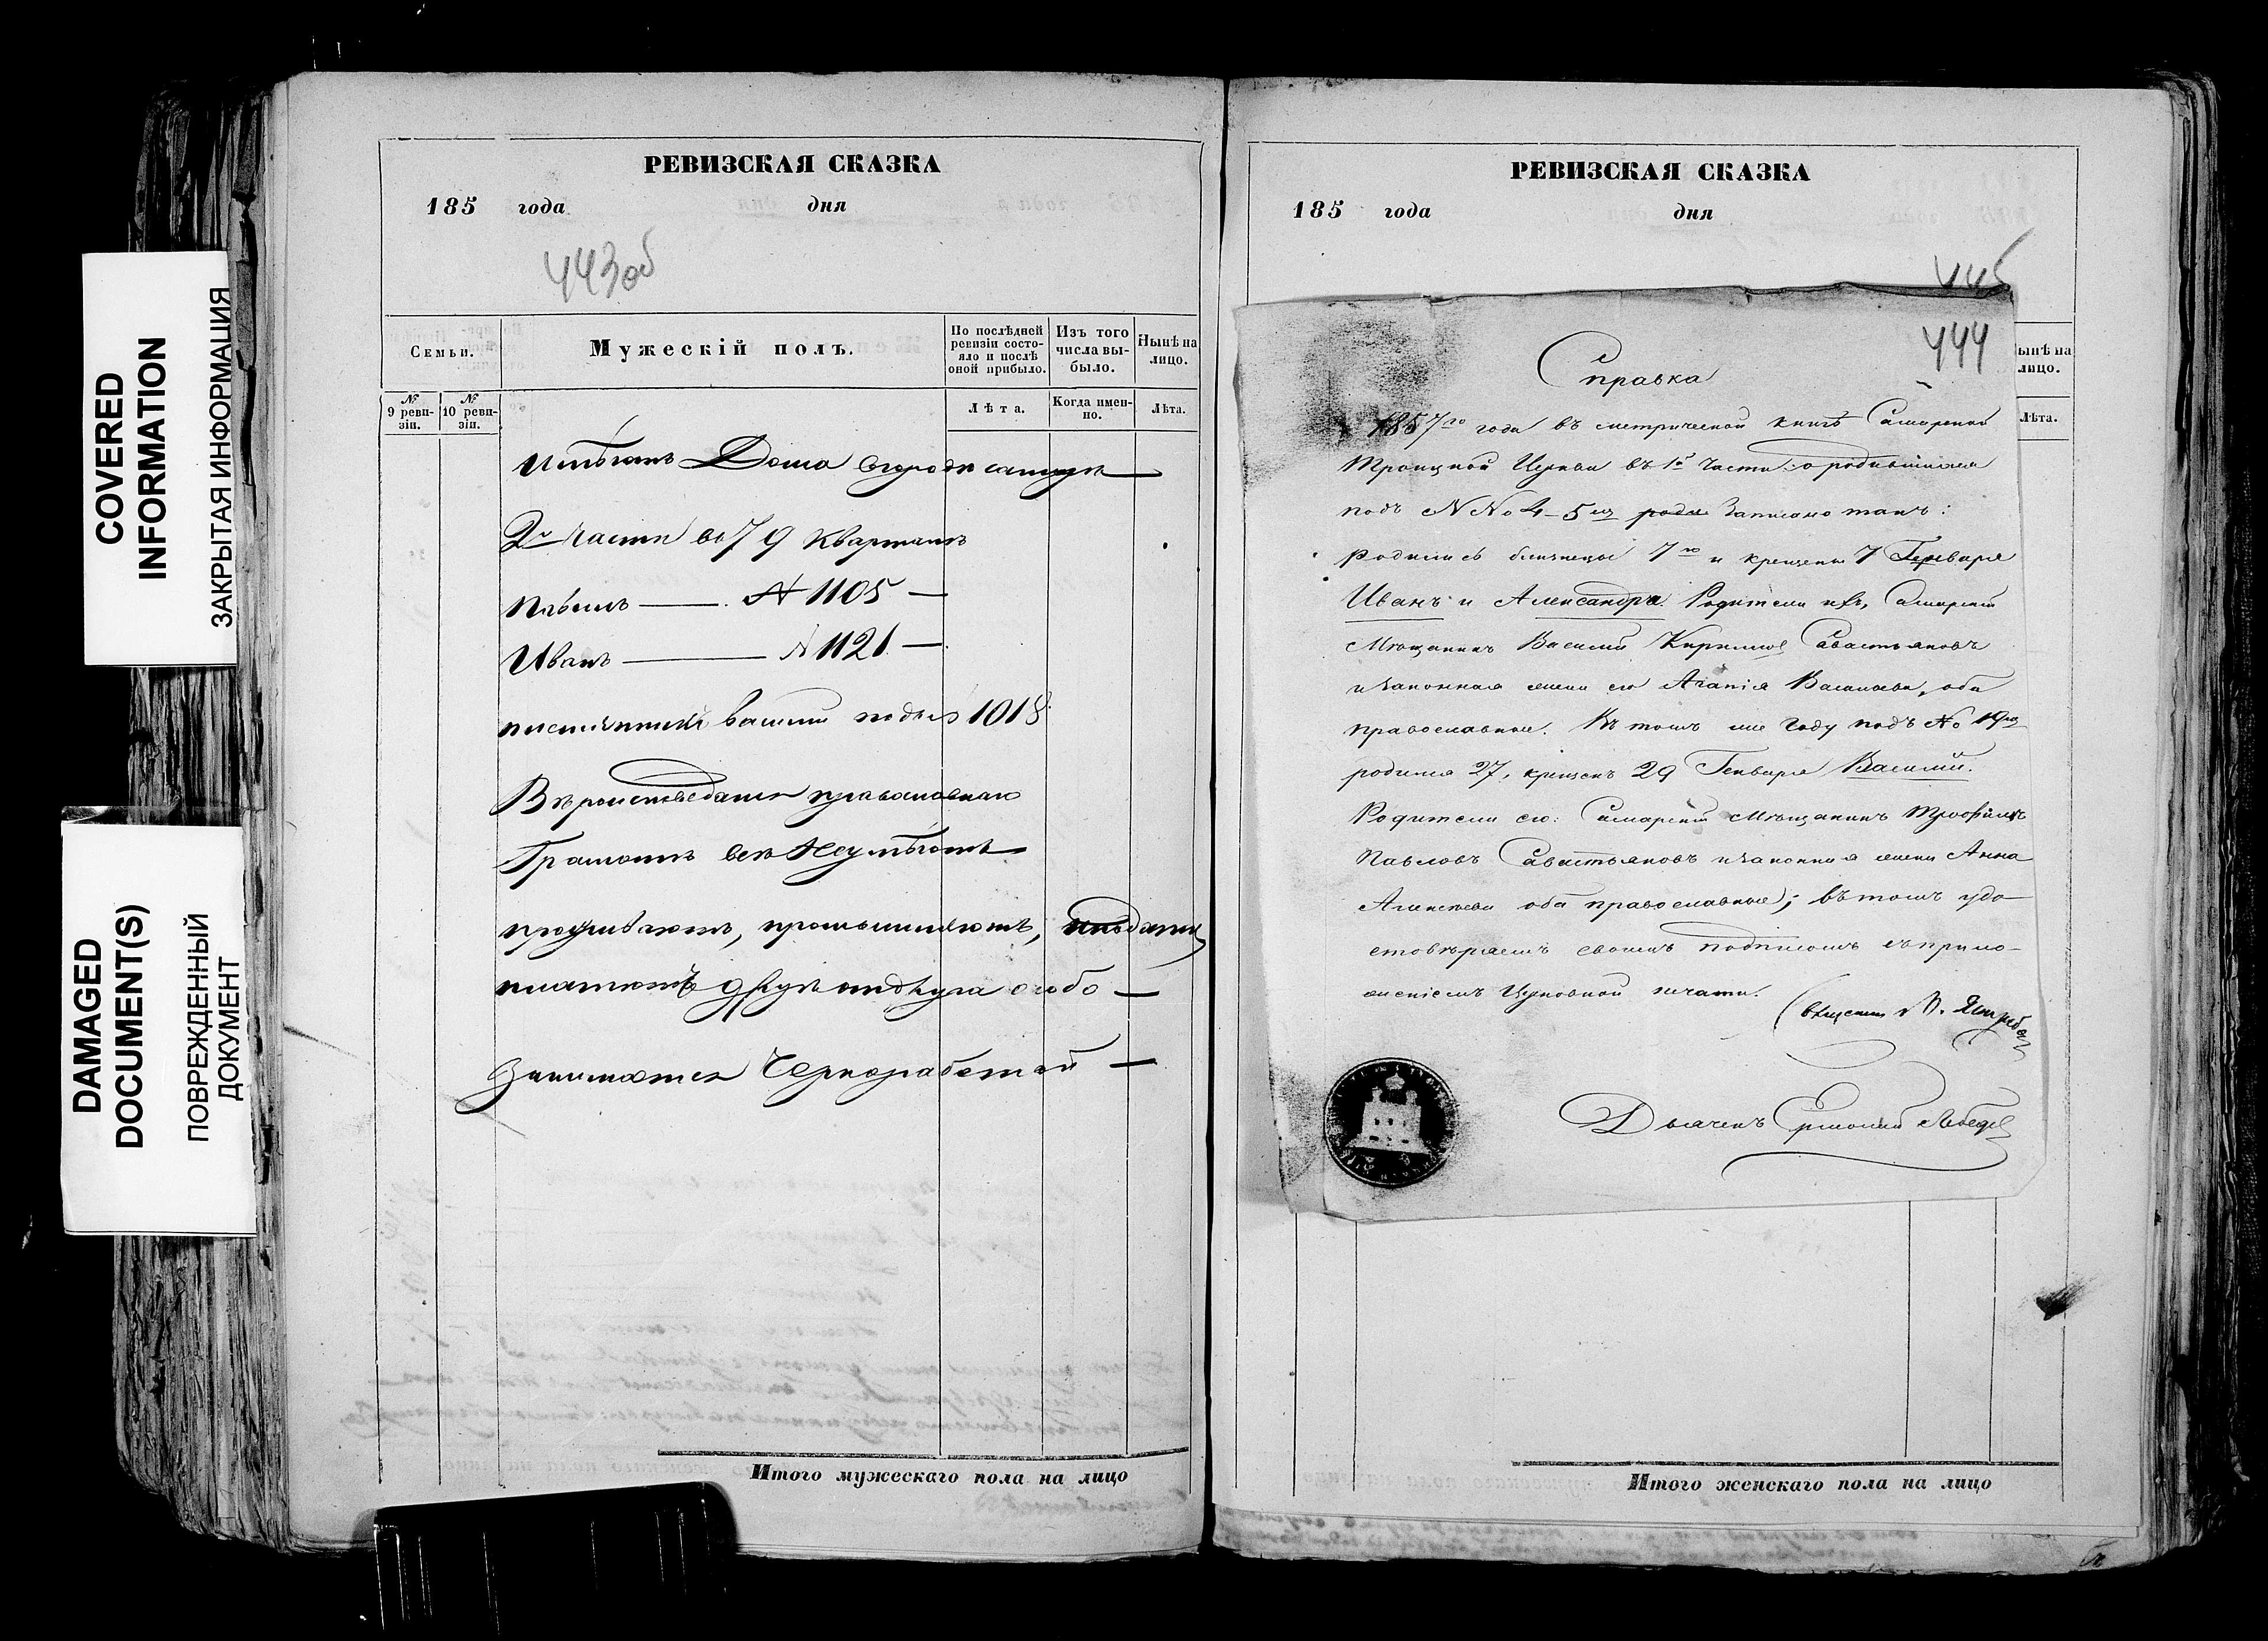 COVERED
INFORMATION
ЗАКРЫТАЯ ИНФОРМАЦИЯ
DAMAGED
DOCUMENT(S)
ПОВРЕЖДЕННЫЙ
ДОКУМЕНТ
РЕВИЗСКАЯ СКАЗКА
185 года дня
443об
Семьи.
Мужескій полъ.
По послѣдней
ревизіи состо-
яло и послѣ
оной прибыло.
Изъ того
числа вы-
было.
Нынѣ на
лицо.
№
9 реви-
зіи.
№
10 реви-
зіи.
Лѣта.
Когда имен-
но.
Лѣта.
имѣютъ Дома вгороде самаре
2й части во 79 Кварталѣ
Павелъ — № 1105 —
Иванъ — № 1121 —
василий подъ № 1018
Вѣроисповедания православнаго
Грамотѣ все Неумѣютъ
проживаютъ, промышляютъ, подати
платютъ другъ отдруга особо —
Занимаются Черноработой —
РЕВИЗСКАЯ СКАЗКА
185 года дня
445
ынѣ на
лицо.
Лѣта.
444
Справка
1857го года въ метрической книгѣ Самарской
Троицкой Церкви въ 1й части: о родившихся
подъ NNo 4-5 записано такъ:
Родились близнецы 7го и крещены 7 Генваря
Иванъ и Александра. Родители ихъ, Самарский
Мѣщанинъ Василий Кирилловъ Савастьяновъ
и законная жена его Агапія Васильева, оба
православные. Въ томъ же году подъ No 19
родился 27, крещенъ 29 Генваря Василий.
Родители его: Самарский Мѣщанинъ Трофимъ
Павловъ Савастьяновъ и законная жена Анна
Алексѣева оба православные; въ томъ удо-
стовѣряемъ своимъ подписомъ съ прило-
женіемъ Церковной печати.
Дьячекъ Лебедев
Итого мужескаго пола на лицо
Итого женскаго пола на лицо